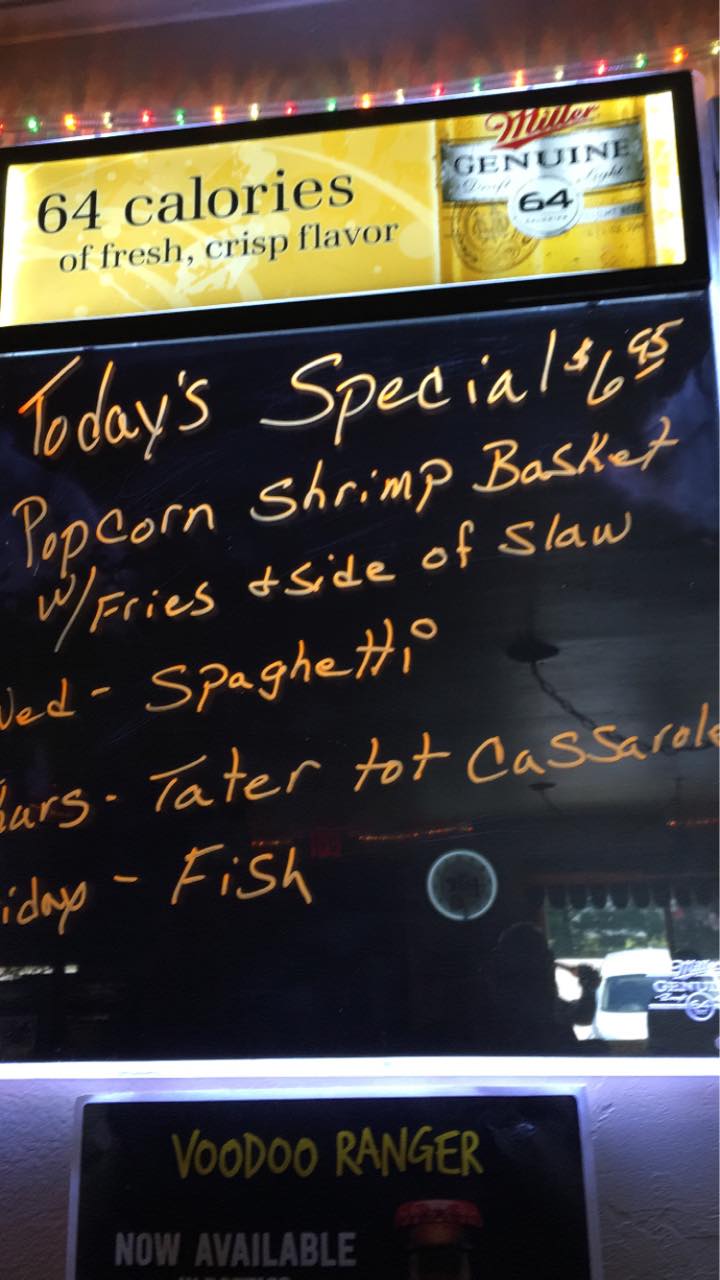 64 calories
of fresh, crisp flavor
Miller
GENUINE
Draft Light
64
CALORIES
Today's Special $6.95
Popcorn Shrimp Basket
w/Fries & Side of Slaw
Wed - Spaghetti
hurs - Tater tot Cassarole
iday - Fish
Miller
GENU
64
VOODOO RANGER
NOW AVAILABLE